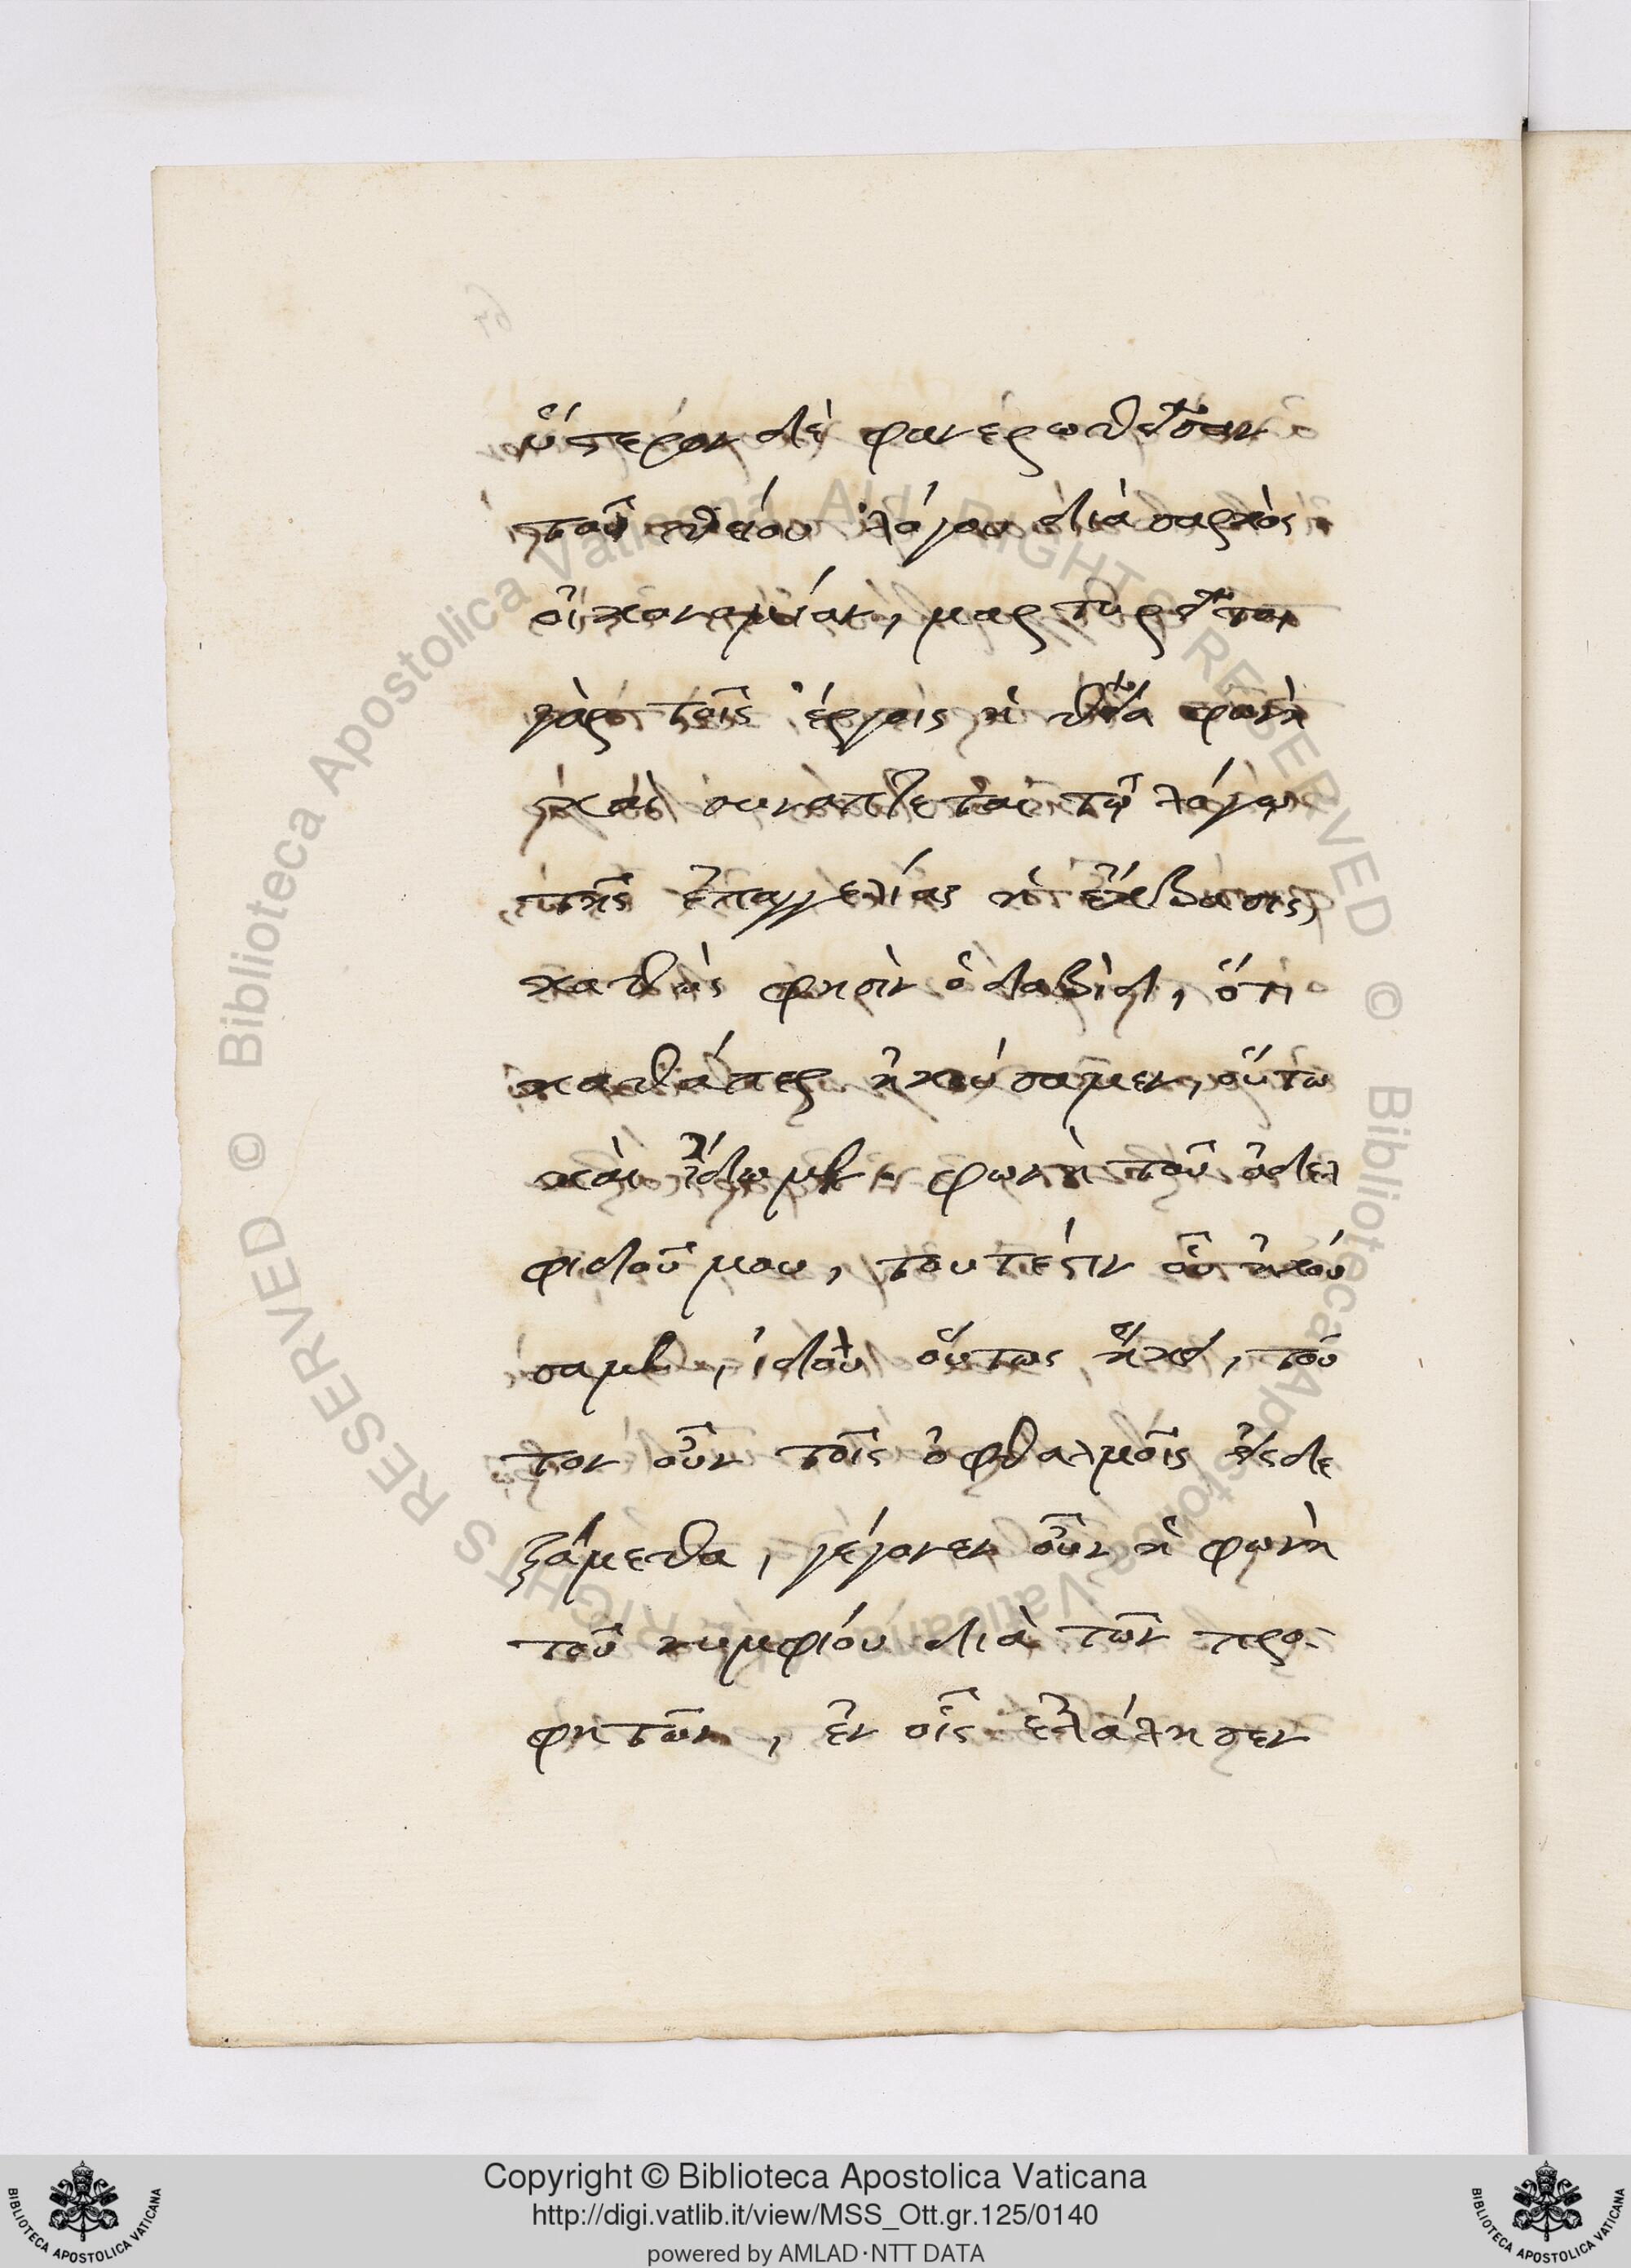 ὕστερον δὲ φανερωθεῖσαν
τοῦ θεοῦ λόγου διὰ σαρκὸς
οἰκονομίαν, μαρτυρεῖται
γὰρ τοῖς ἔργοις ἡ θεία φωνὴ
καὶ συνάπτεται τῷ λόγῳ
τῆς ἐπαγγελίας ἡ ἔκβασις,
καθώς φησὶν ὁ δαβὶδ, ὅτι
καθάπερ ἠκούσαμεν, οὕτω
καὶ εἴδωμεν. φωνὴ τοῦ ἀδελ
φιδοῦ μου, τουτέστιν οὗ ἠκού
σαμεν, ἰδοὺ οὕτως ἥκει, τοῦ
τον οὖν τοῖς ὀφθαλμοῖς εἰσδε
ξάμεθα, γέγονεν οὖν ἡ φωνὴ
τοῦ νυμφίου διὰ τῶν προ-
φητῶν, ἐν οἷς ἐλάλησεν
Copyright © Biblioteca Apostolica Vaticana
http://digi.vatlib.it/view/MSS_Ott.gr.125/0140
powered by AMLAD·NTT DATA
BIBLIOTECA APOSTOLICA VATICANA
BIBLIOTECA APOSTOLICA VATICANA
© Biblioteca Apostolica Vaticana All RIGHTS RESERVED © Biblioteca Apostolica Vaticana All RIGHTS RESERVED